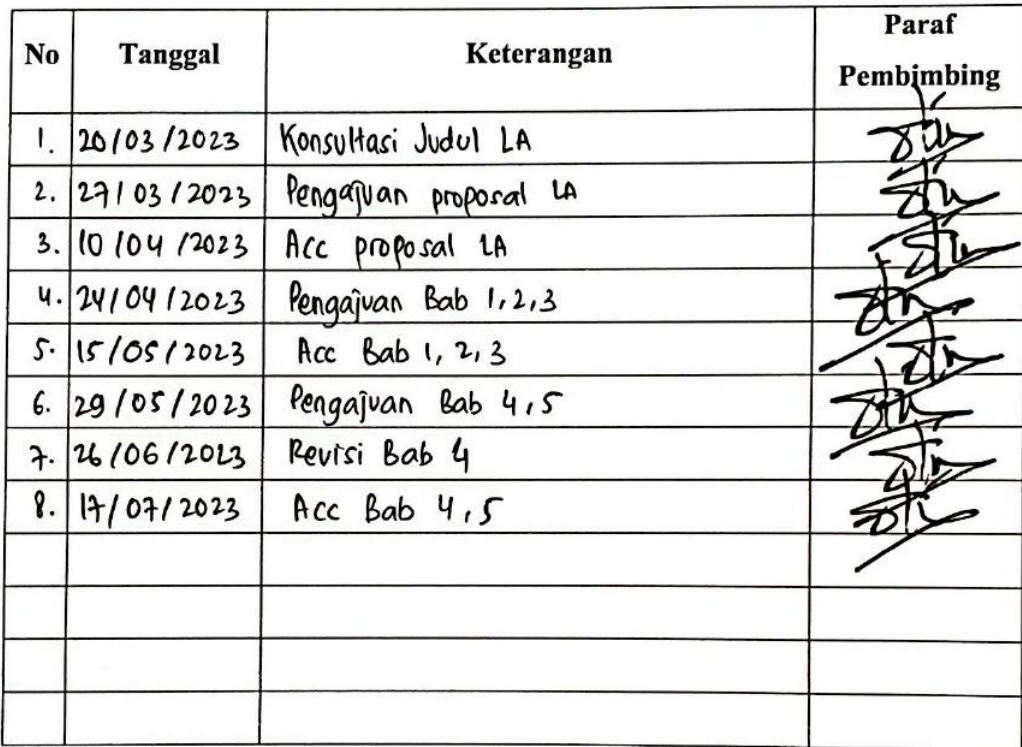 No Tanggal Keterangan Paraf Pembimbing
1. 20/03/2023 Konsultasi Judul LA
2. 27/03/2023 Pengajuan proposal LA
3. 10/04/2023 Acc proposal LA
4. 24/04/2023 Pengajuan Bab 1,2,3
5. 15/05/2023 Acc Bab 1, 2, 3
6. 29/05/2023 Pengajuan Bab 4,5
7. 26/06/2023 Revisi Bab 4
8. 17/07/2023 Acc Bab 4,5